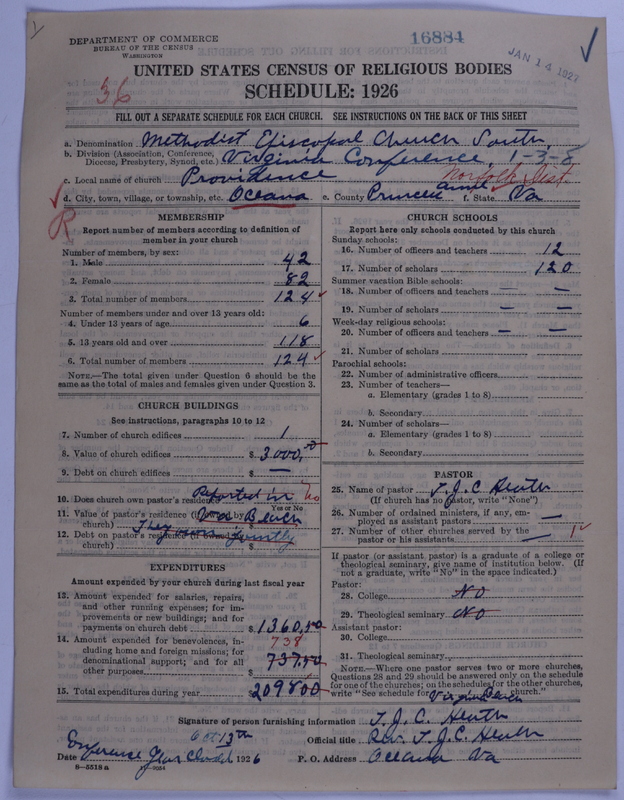 DEPARTMENT OF COMMERCE
BUREAU OF THE CENSUS
WASHINGTON
16884
JAN 14 1927
UNITED STATES CENSUS OF RELIGIOUS BODIES
36
SCHEDULE: 1926
FILL OUT A SEPARATE SCHEDULE FOR EACH CHURCH. SEE INSTRUCTIONS ON THE BACK OF THIS SHEET
a. Denomination Methodist Episcopal Church South
b. Division (Association, Conference, Diocese, Presbytery, Synod, etc.) Virginia Conference, 1-3-8
c. Local name of church Providence Norfolk Dist
d. City, town, village, or township, etc. Oceana e. County Princess Anne f. State Va
R
MEMBERSHIP
Report number of members according to definition of
member in your church
Number of members, by sex:
1. Male 42
2. Female 82
3. Total number of members 124
Number of members under and over 13 years old:
4. Under 13 years of age 6
5. 13 years old and over 118
6. Total number of members 124
NOTE.—The total given under Question 6 should be the
same as the total of males and females given under Question 3.
CHURCH BUILDINGS
See instructions, paragraphs 10 to 12
7. Number of church edifices 1
8. Value of church edifices $ 3000,00
9. Debt on church edifices $ —
10. Does church own pastor's residence Reported in no
Yes or No
11. Value of pastor's residence (if owned by church) Va Beach
12. Debt on pastor's residence (if owned by church) They own jointly
EXPENDITURES
Amount expended by your church during last fiscal year
13. Amount expended for salaries, repairs,
and other running expenses; for im-
provements or new buildings; and for
payments on church debt $ 1360,50
14. Amount expended for benevolences, in-
cluding home and foreign missions; for
denominational support; and for all
other purposes $ 737.50
738
15. Total expenditures during year $ 209800
CHURCH SCHOOLS
Report here only schools conducted by this church
Sunday schools:
16. Number of officers and teachers 12
17. Number of scholars 120
Summer vacation Bible schools:
18. Number of officers and teachers — —
19. Number of scholars — —
Week-day religious schools:
20. Number of officers and teachers — —
21. Number of scholars
Parochial schools:
22. Number of administrative officers
23. Number of teachers—
a. Elementary (grades 1 to 8)
b. Secondary
24. Number of scholars—
a. Elementary (grades 1 to 8)
b. Secondary
PASTOR
25. Name of pastor T. J. C. Heath
(If church has no pastor, write "None")
26. Number of ordained ministers, if any, em-
ployed as assistant pastors —
27. Number of other churches served by the
pastor or his assistants — 1
If pastor (or assistant pastor) is a graduate of a college or
theological seminary, give name of institution below. (If
not a graduate, write "No" in the space indicated.)
Pastor:
28. College No
29. Theological seminary No
Assistant pastor:
30. College
31. Theological seminary
NOTE.—Where one pastor serves two or more churches,
Questions 28 and 29 should be answered only on the schedule
for one of the churches; on the schedules for the other churches,
write "See schedule for Virginia Beach church."
Signature of person furnishing information T. J. C. Heath
Oct 13th
Official title Rev. T. J. C. Heath
Date Conference Year Closed 1926
P. O. Address Oceana Va
8—5518 a